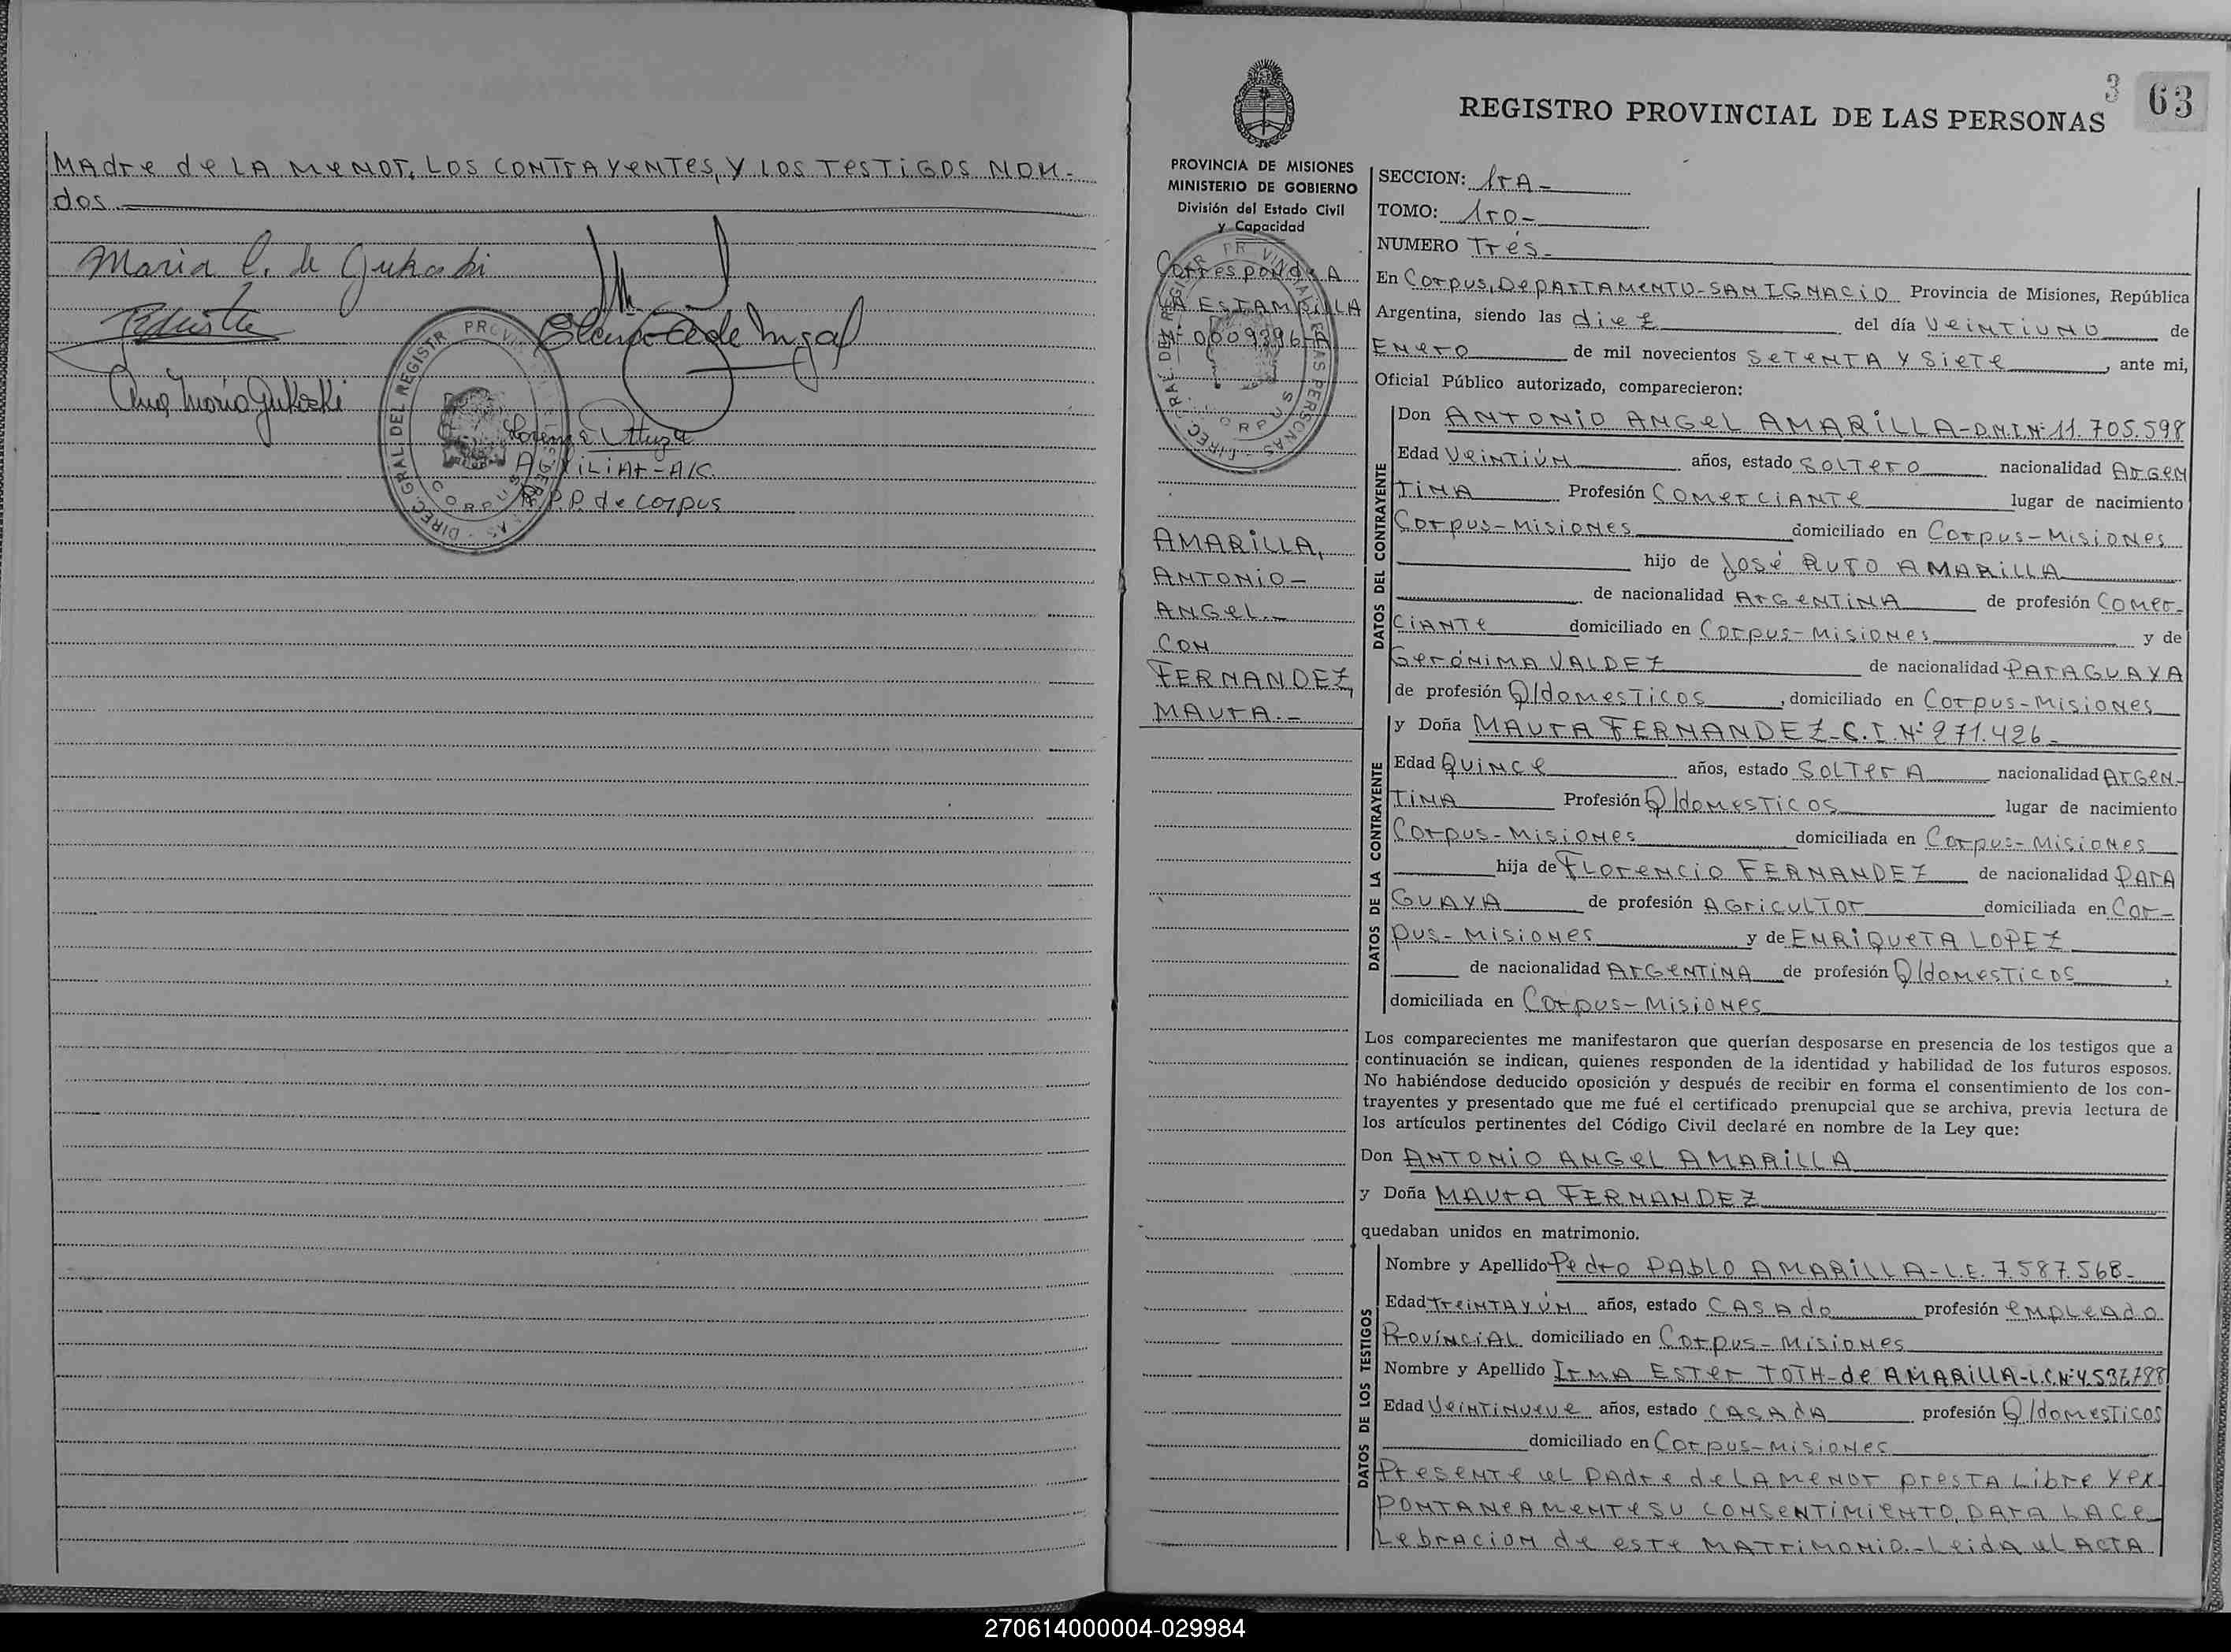 MAdre de LA MeNOr, LOS CONTrAYeNTes, Y LOS TesTiGOS NOM-
dos
Maria C. de Gukoski
Ana Maria Gukoski
AUXiLiAr-A/C.
de Corpus
3 63
REGISTRO PROVINCIAL DE LAS PERSONAS
PROVINCIA DE MISIONES
MINISTERIO DE GOBIERNO
División del Estado Civil
y Capacidad
CorrespondeA
LA ESTAMPiLLA
Nº 0009396-A
AMARiLLA,
ANTONiO-
ANGeL.-
CON
FERNANDEZ,
MAUrA.-
SECCION: 1rA-
TOMO: 1rO-
NUMERO Trés-
En Corpus, DepArTAMeNTO-SAN IGNACiO Provincia de Misiones, República
Argentina, siendo las dieZ del día VeiNTiUNO de
ENerO de mil novecientos SeTeNTA Y SieTe, ante mi,
Oficial Público autorizado, comparecieron:
DATOS DEL CONTRAYENTE
Don ANTONiO ANGeL AMARiLLA-D.N.I.Nº 11.705.598
Edad VeiNTiÚN años, estado SOLTerO nacionalidad ArGeN
TiNA Profesión COMerCiANTe lugar de nacimiento
Corpus-MisiONes domiciliado en Corpus-MisiONes
hijo de José RUFO AMARiLLA
de nacionalidad ArGeNTiNA de profesión COMer-
CiANTe domiciliado en Corpus-MisiONes y de
GerÓNiMA VALDEZ de nacionalidad PArAGUAYA
de profesión Q/dOMesTiCOS, domiciliado en Corpus-MisiONes
y Doña MAUrA FERNANDEZ-C.I.Nº 271.426-
DATOS DE LA CONTRAYENTE
Edad QuiNCe años, estado SOLTerA nacionalidad ArGeN-
TiNA Profesión Q/dOMesTiCOS lugar de nacimiento
Corpus-MisiONes domiciliada en Corpus-MisiONes
hija de FLOreNCiO FERNANDEZ de nacionalidad PArA
GUAYA de profesión AGriCULTOr domiciliada en Cor-
pus-MisiONes y de ENRiQUeTA LOPEZ
de nacionalidad ArGeNTiNA de profesión Q/dOMesTiCOS,
domiciliada en Corpus-MisiONes
Los comparecientes me manifestaron que querían desposarse en presencia de los testigos que a
continuación se indican, quienes responden de la identidad y habilidad de los futuros esposos.
No habiéndose deducido oposición y después de recibir en forma el consentimiento de los con-
trayentes y presentado que me fué el certificado prenupcial que se archiva, previa lectura de
los artículos pertinentes del Código Civil declaré en nombre de la Ley que:
Don ANTONiO ANGeL AMARiLLA
y Doña MAUrA FERNANDEZ
quedaban unidos en matrimonio.
DATOS DE LOS TESTIGOS
Nombre y Apellido Pedro PAbLO AMARiLLA-L.E. 7.587.568-
Edad TreiNTAYÚN años, estado CASAdo profesión eMpLeAdO
ProvÍNCiAL domiciliado en Corpus-MisiONes
Nombre y Apellido IrMA ESTer TOTH-de AMARiLLA-L.C.Nº
Edad VeiNTiNueve años, estado CASAdA profesión Q/dOMesTiCOS
domiciliado en Corpus-MisiONes
PreseNTe el pAdre deLAMeNOr presTA Libre Y ex
PONTANeAMeNTe SU CONSeNTiMieNTO pArA LACe
LebrACiON de esTe MATriMONiO.-Leida el ACTA
270614000004-029984